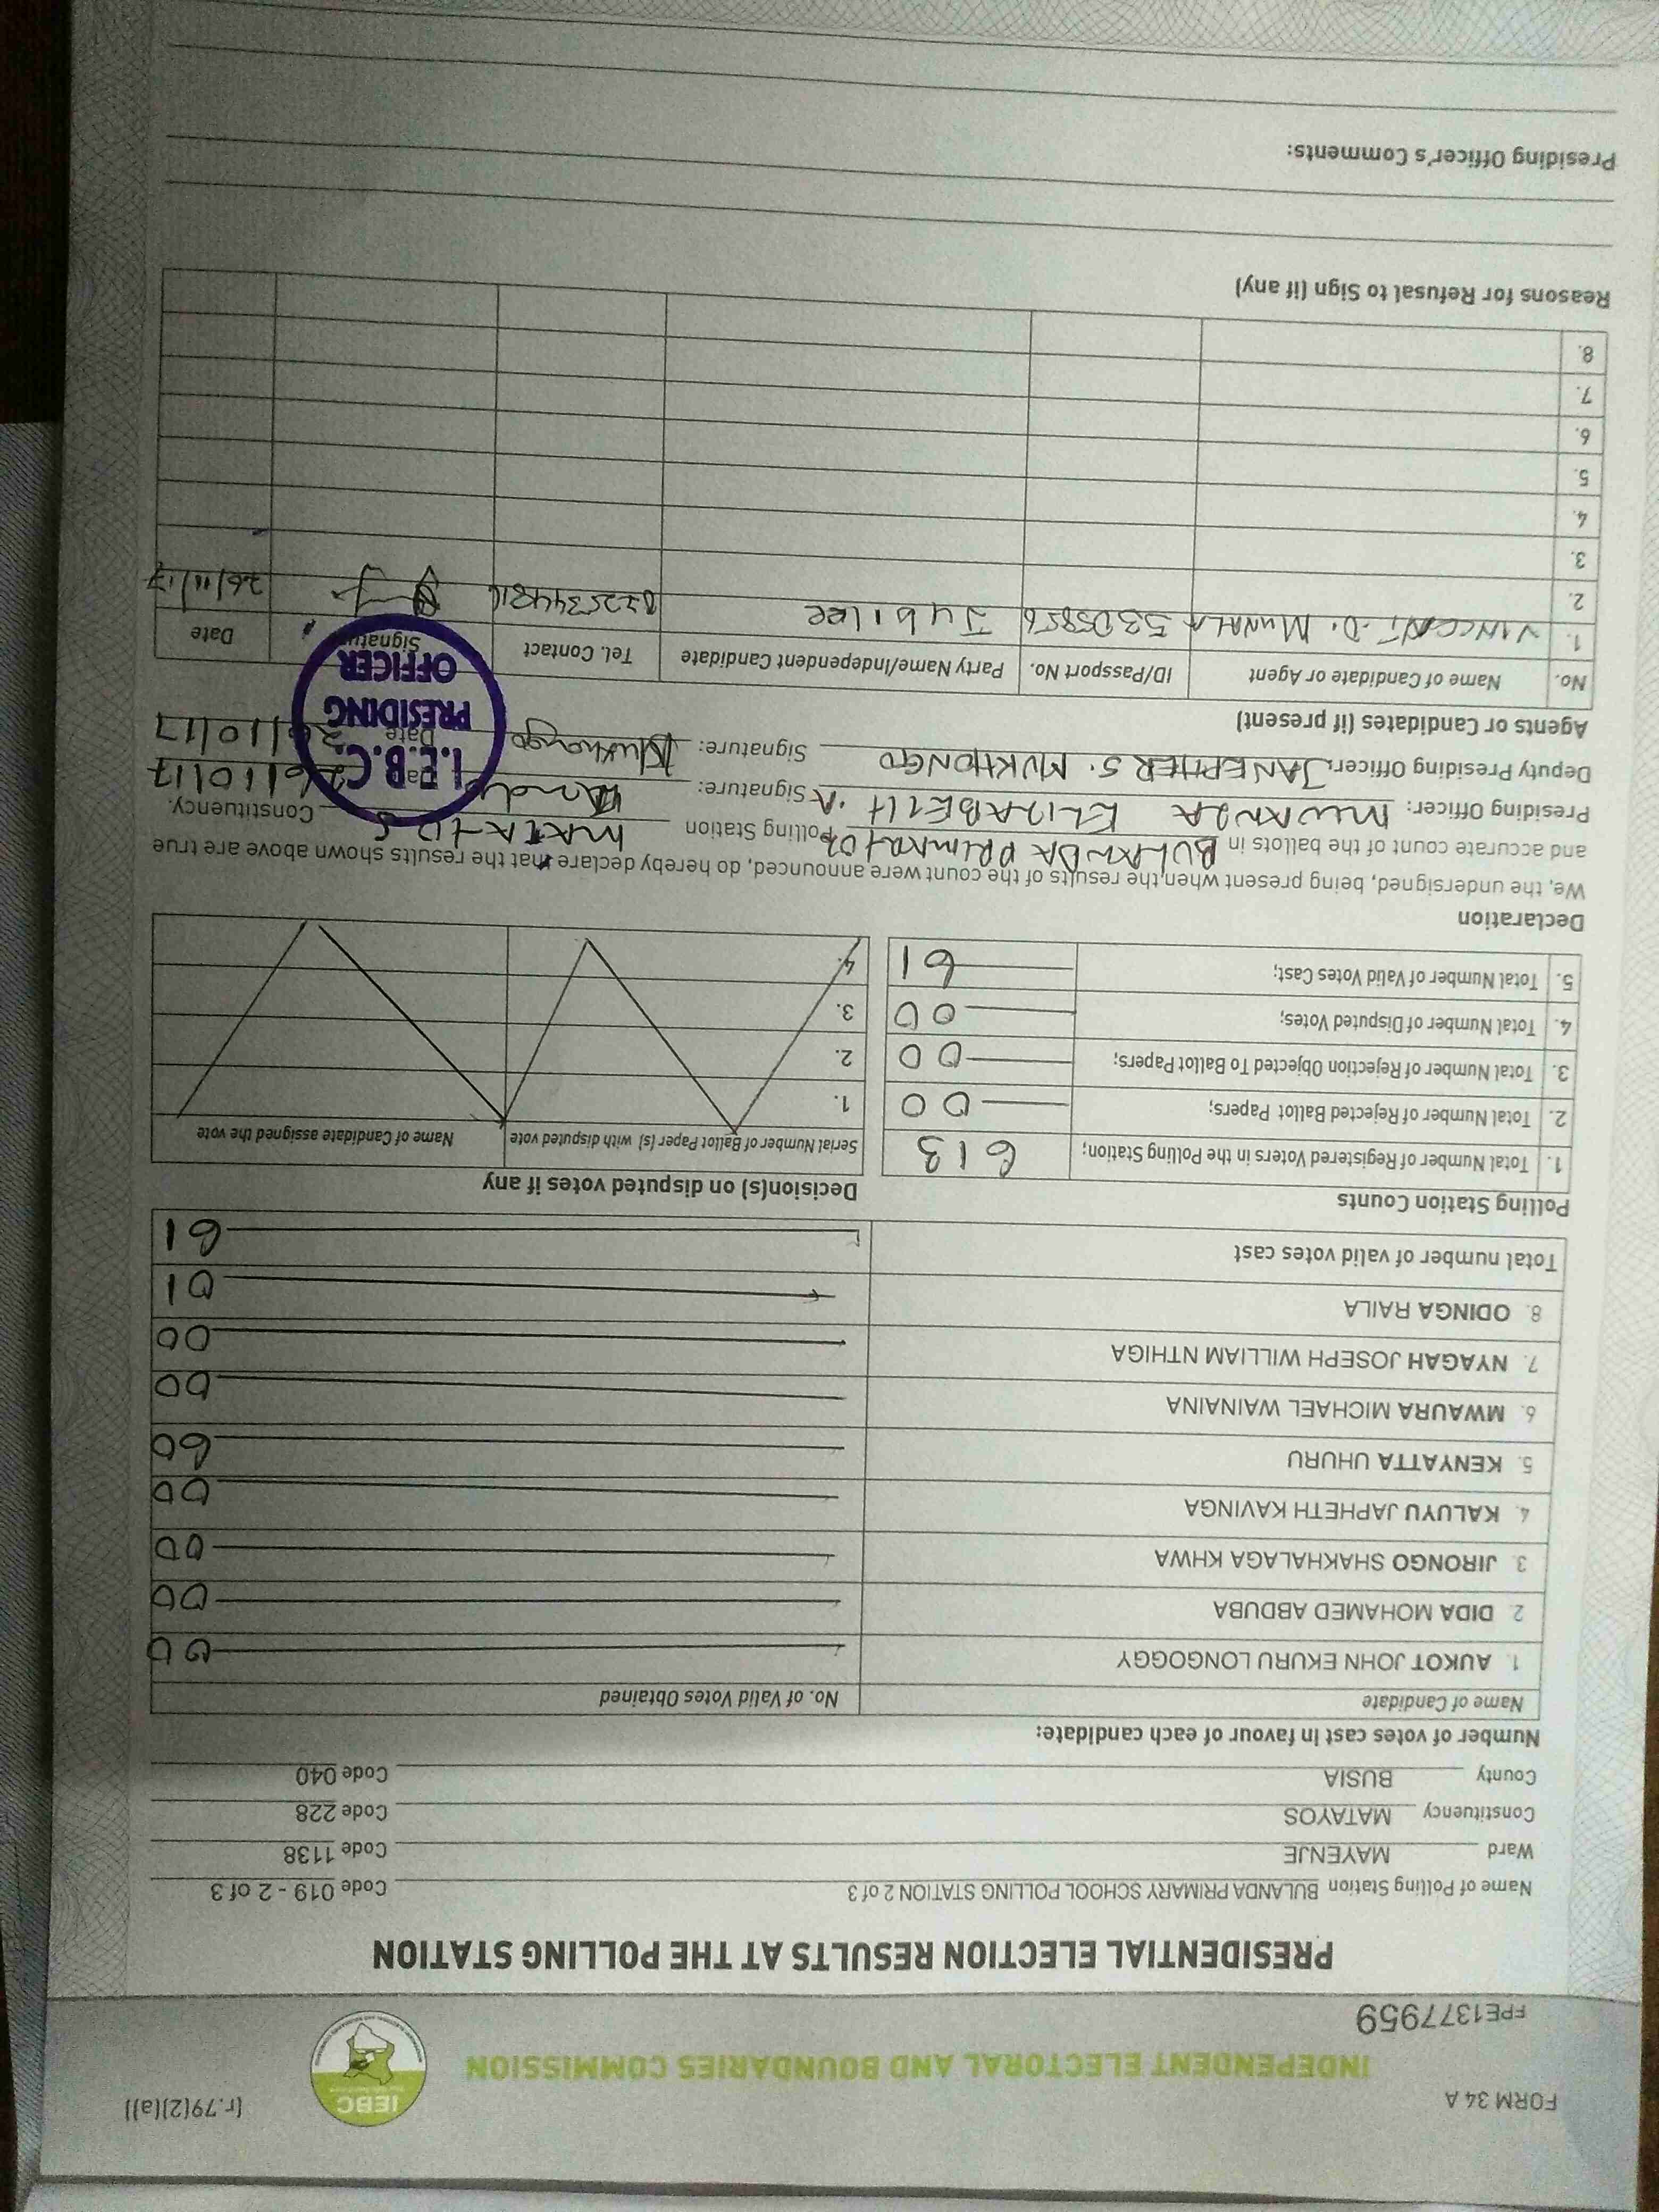 FORM 34 A
(r.79(2)(a))
IEBC
INDEPENDENT ELECTORAL AND BOUNDARIES COMMISSION
FPE1377959
PRESIDENTIAL ELECTION RESULTS AT THE POLLING STATION
Name of Polling Station BULANDA PRIMARY SCHOOL POLLING STATION 2 of 3 Code 019 - 2 of 3
Ward MAYENJE Code 1138
Constituency MATAYOS Code 228
County BUSIA Code 040
Number of votes cast in favour of each candidate:
Name of Candidate No. of Valid Votes Obtained
1. AUKOT JOHN EKURU LONGOGGY 00
2. DIDA MOHAMED ABDUBA 00
3. JIRONGO SHAKHALAGA KHWA 00
4. KALUYU JAPHETH KAVINGA 00
5. KENYATTA UHURU 60
6. MWAURA MICHAEL WAINAINA 00
7. NYAGAH JOSEPH WILLIAM NTHIGA 00
8. ODINGA RAILA 01
Total number of valid votes cast 61
Polling Station Counts
1. Total Number of Registered Voters in the Polling Station; 613
2. Total Number of Rejected Ballot Papers; 00
3. Total Number of Rejection Objected To Ballot Papers; 00
4. Total Number of Disputed Votes; 00
5. Total Number of Valid Votes Cast; 61
Decision(s) on disputed votes if any
Serial Number of Ballot Paper (s) with disputed vote Name of Candidate assigned the vote
1.
2.
3.
4.
Declaration
We, the undersigned, being present when the results of the count were announced, do hereby declare that the results shown above are true
and accurate count of the ballots in BULANDA PRIMARY 02 Polling Station MATAYOS Constituency.
Presiding Officer: MWANZA ELIZABETH A. Signature: Date 26/10/17
Deputy Presiding Officer: JANEPHER S. MUKHONGO Signature: Mukhongo Date 26/10/17
I.E.B.C.
PRESIDING
OFFICER
Agents or Candidates (if present)
No. Name of Candidate or Agent ID/Passport No. Party Name/Independent Candidate Tel. Contact Signature Date
1. VINCENT D. MUNALA Jubilee 26/11/17
2.
3.
4.
5.
6.
7.
8.
Reasons for Refusal to Sign (if any)
Presiding Officer's Comments: